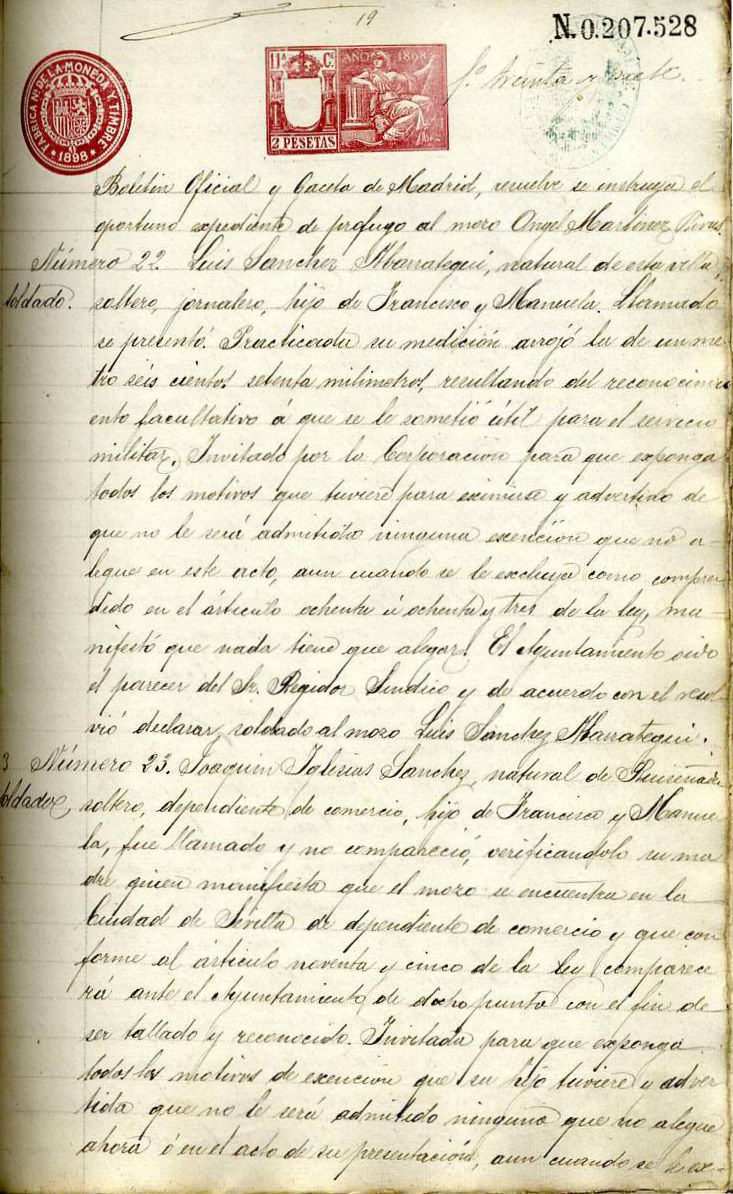 19
N. 0.207.528
FABRICA Nal. DE LA MONEDA Y TIMBRE
* 1898 *
11ª C.
AÑO 1898
2 PESETAS
fº treinta y siete.
Boletin Oficial y Gaceta de Madrid, resuelve se instruya el
oportuno expediente de prófugo al mozo Angel Martinez
Número 22. Luis Sanchez Marrategui, natural de esta villa,
soldado. soltero, jornalero, hijo de Francisco y Manuela. Llamado
se presentó. Practicada su medición arrojó la de un me-
tro seis cientos setenta milimetros, resultando del reconocimi
ento facultativo á que se le sometió útil para el servicio
militar. Invitado por la Corporación para que exponga
todos los motivos que tuviere para eximirse y advertido de
que no le será admitida ninguna exención que no a-
legue en este acto, aun cuando se le excluya como compren
dido en el árticulo ochenta ú ochenta y tres de la ley, ma-
nifestó que nada tiene que alegar. El Ayuntamiento oido
el parecer del Sr. Regidor Sindico y de acuerdo con el resol
vió declarar soldado al mozo Luis Sanchez Marrategui.
3 Número 23. Joaquin Iglesias Sanchez, natural de Ruiseñada
soldado soltero, dependiente de comercio, hijo de Francisco y Manue
la, fue llamado y no compareció, verificandolo su ma
dre quien manifiesta que el mozo se encuentra en la
Ciudad de Sevilla de dependiente de comercio y que con
forme al árticulo noventa y cinco de la ley comparece
rá ante el Ayuntamiento de dicho punto con el fin de
ser tallado y reconocido. Invitada para que exponga
todos los motivos de exención que su hijo tuviere y adver
tida que no le será admitido ninguno que no alegue
ahora ó en el acto de su presentación, aun cuando se le ex-